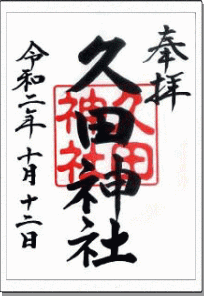 奉拝
久田神社
久田神社
令和二年十月十二日